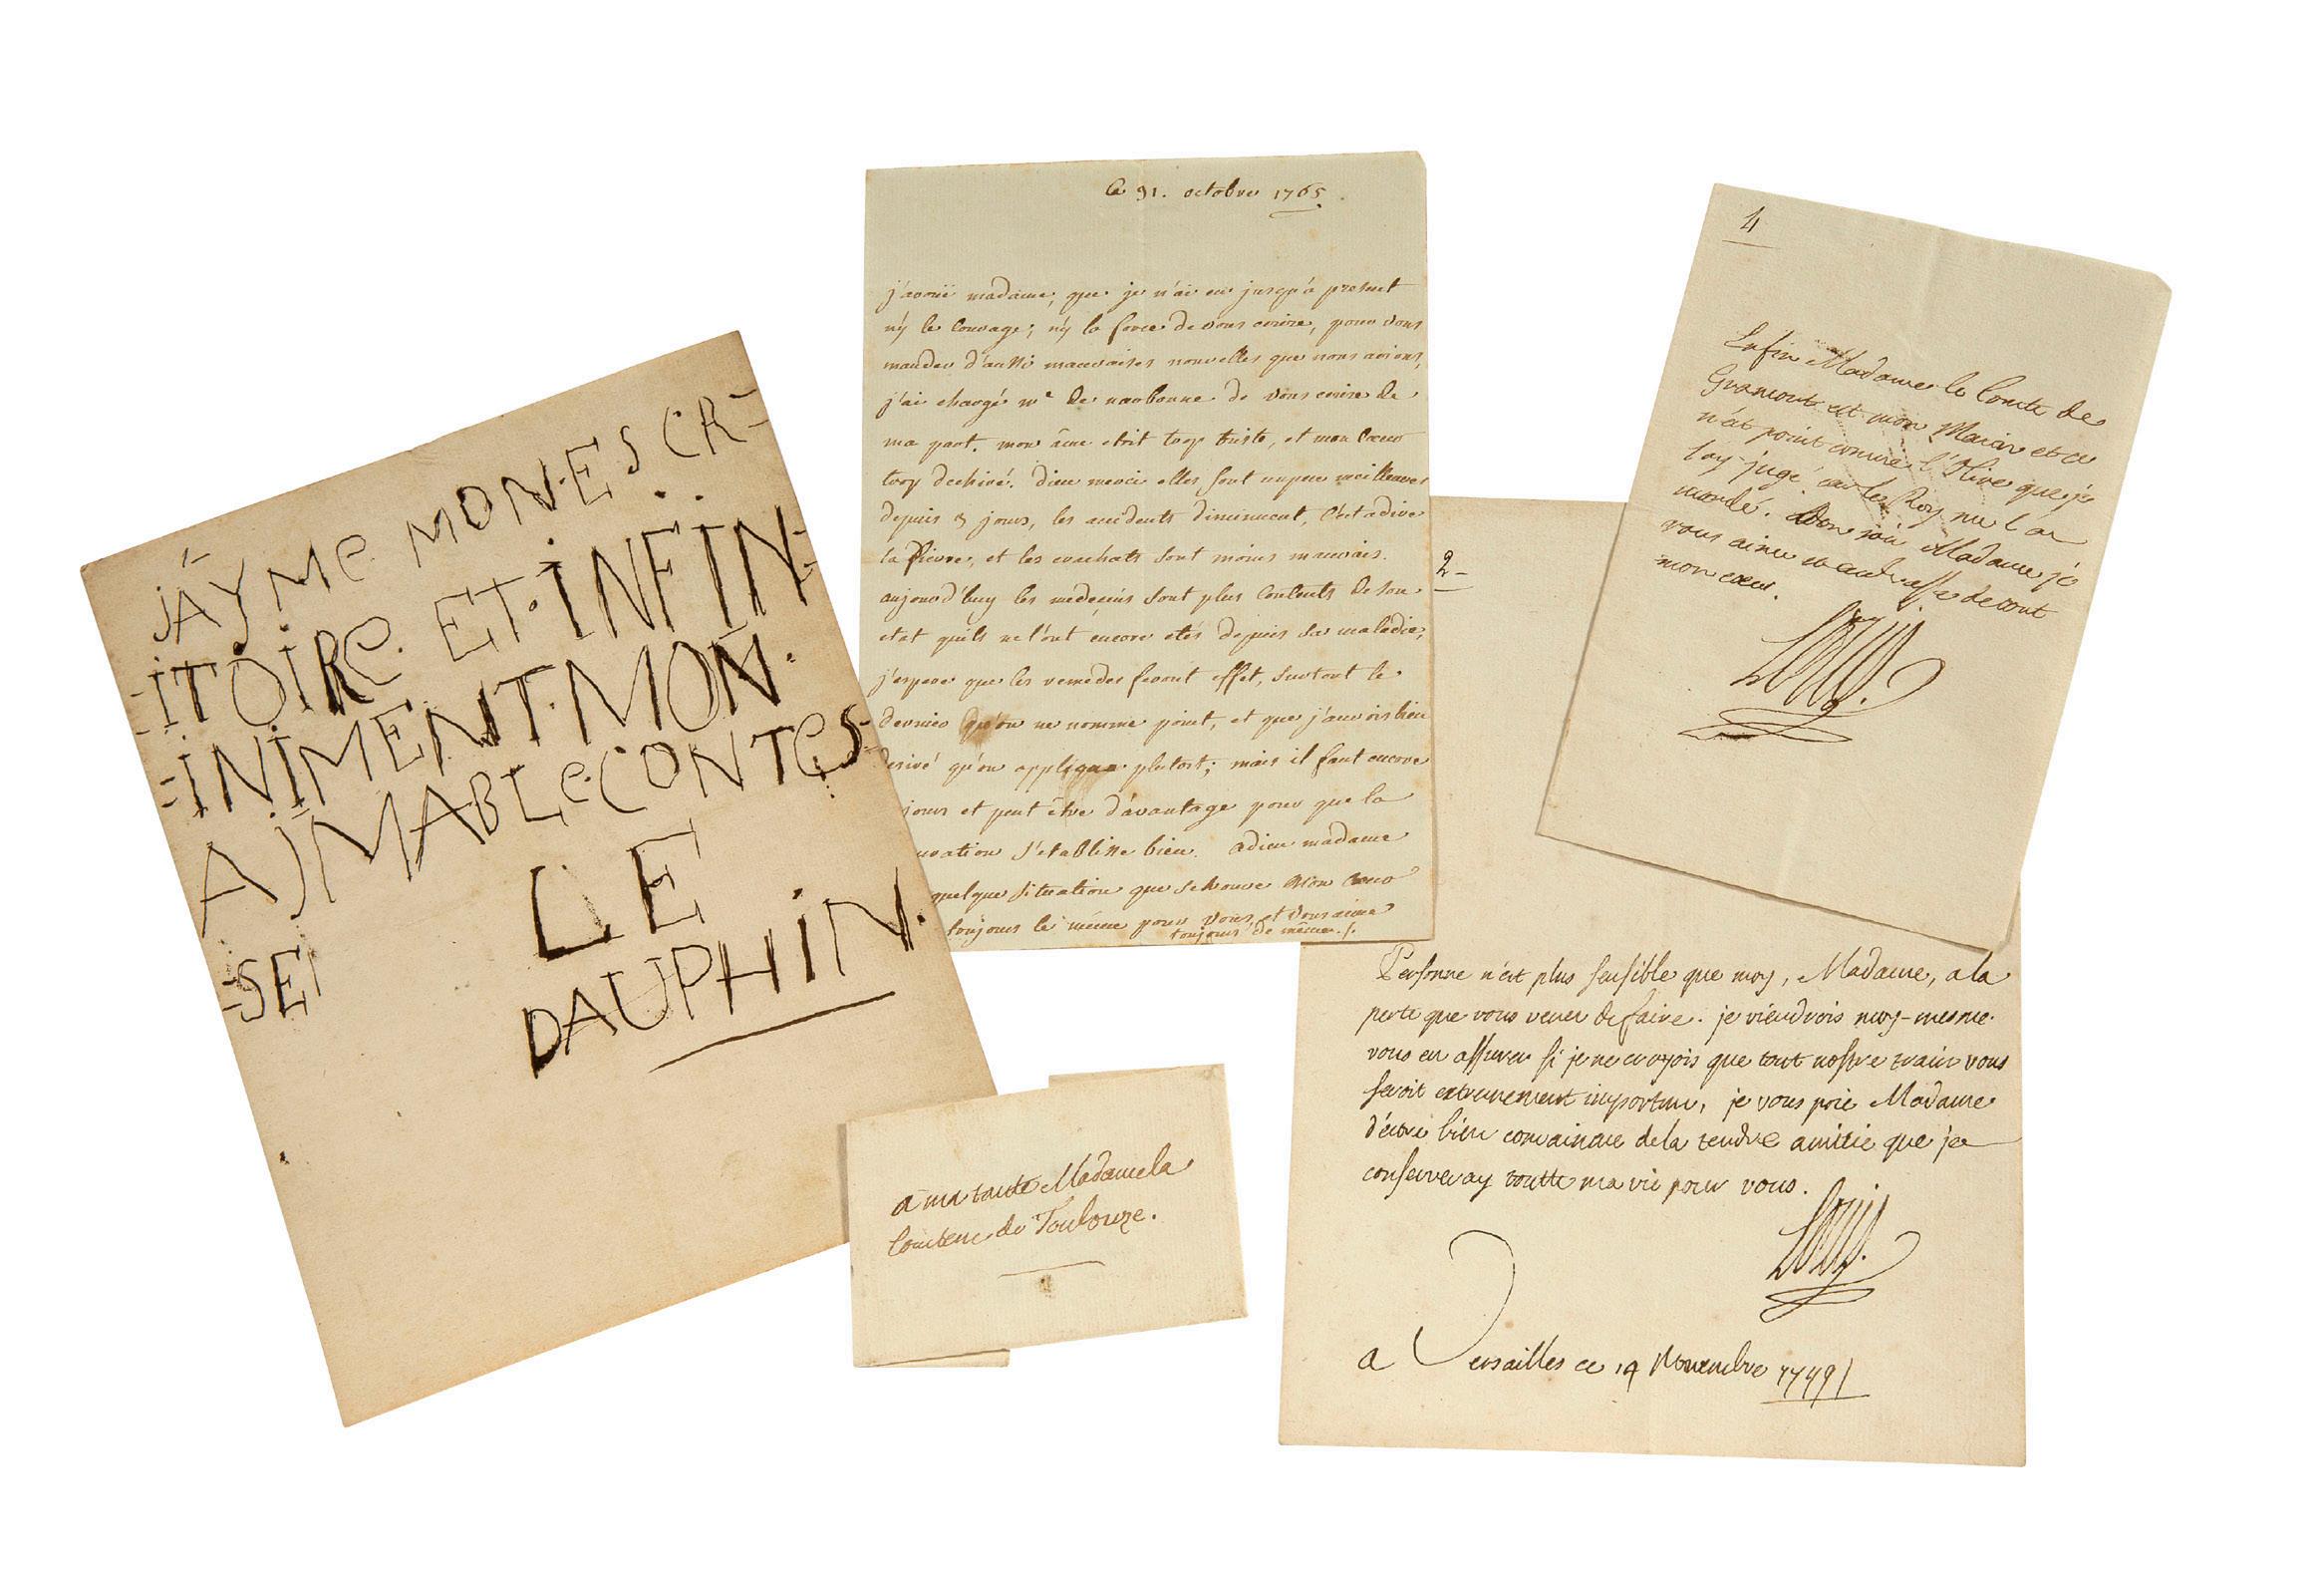 JAYMe MON.ESCR-
-ITOIRe. ET.INFIN-
-INIMENT.MON.
AIMABLe.CONTeS-
-SE
LE
DAUPHIN.
Ce 31. octobre 1765.
j'avoüe madame, que je n'ai eu jusqu'a present
n'y le Courage; n'y la force de vous ecrire, pour vous
mander d'aussi mauvaises nouvelles que nous avions,
j'ai chargé me de narbonne de vous ecrire de
ma part. mon âme etoit trop triste, et mon Cœur
trop dechiré. Dieu merci elles sont un peu meilleures
depuis 3 jours, les accidents diminuent, C'est a dire
la fievre, et les crachats sont moins mauvais.
aujourd'huy les médecins sont plus Contents de son
etat qu'ils ne l'ont encore etés depuis sa maladie,
j'espere que les remedes feront effet, surtout le
dernier qu'on ne nomme point, et que j'aurois bien
desiré qu'on appliqua plutost; mais il faut encore
jours et peut être d'avantage pour que la
s'etablisse bien. adieu madame
quelque situation que se trouve mon Cœur
toujours le même pour vous, et vous aime
toujours de même./.
4
Enfin Madame le Comte de
Gramont est mon Maior et ce
n'ét point comme l'Olive que je
l'ay jugé car le Roy me l'a
mandé. Bon soir Madame je
vous aime et embrasse de tout
mon cœur.
Louis.
2-
Personne n'est plus sensible que moy, Madame, a la
perte que vous venez de faire. je viendrois moy-mesme
vous en assurer si je ne croyois que tout nostre train vous
seroit extremement importun, je vous prie Madame
d'estre bien convaincue de la tendre amitié que je
conserveray toutte ma vie pour vous.
Louis.
a Versailles ce 14 Novembre
a ma tante Madame la
Comtesse de Toulouze.